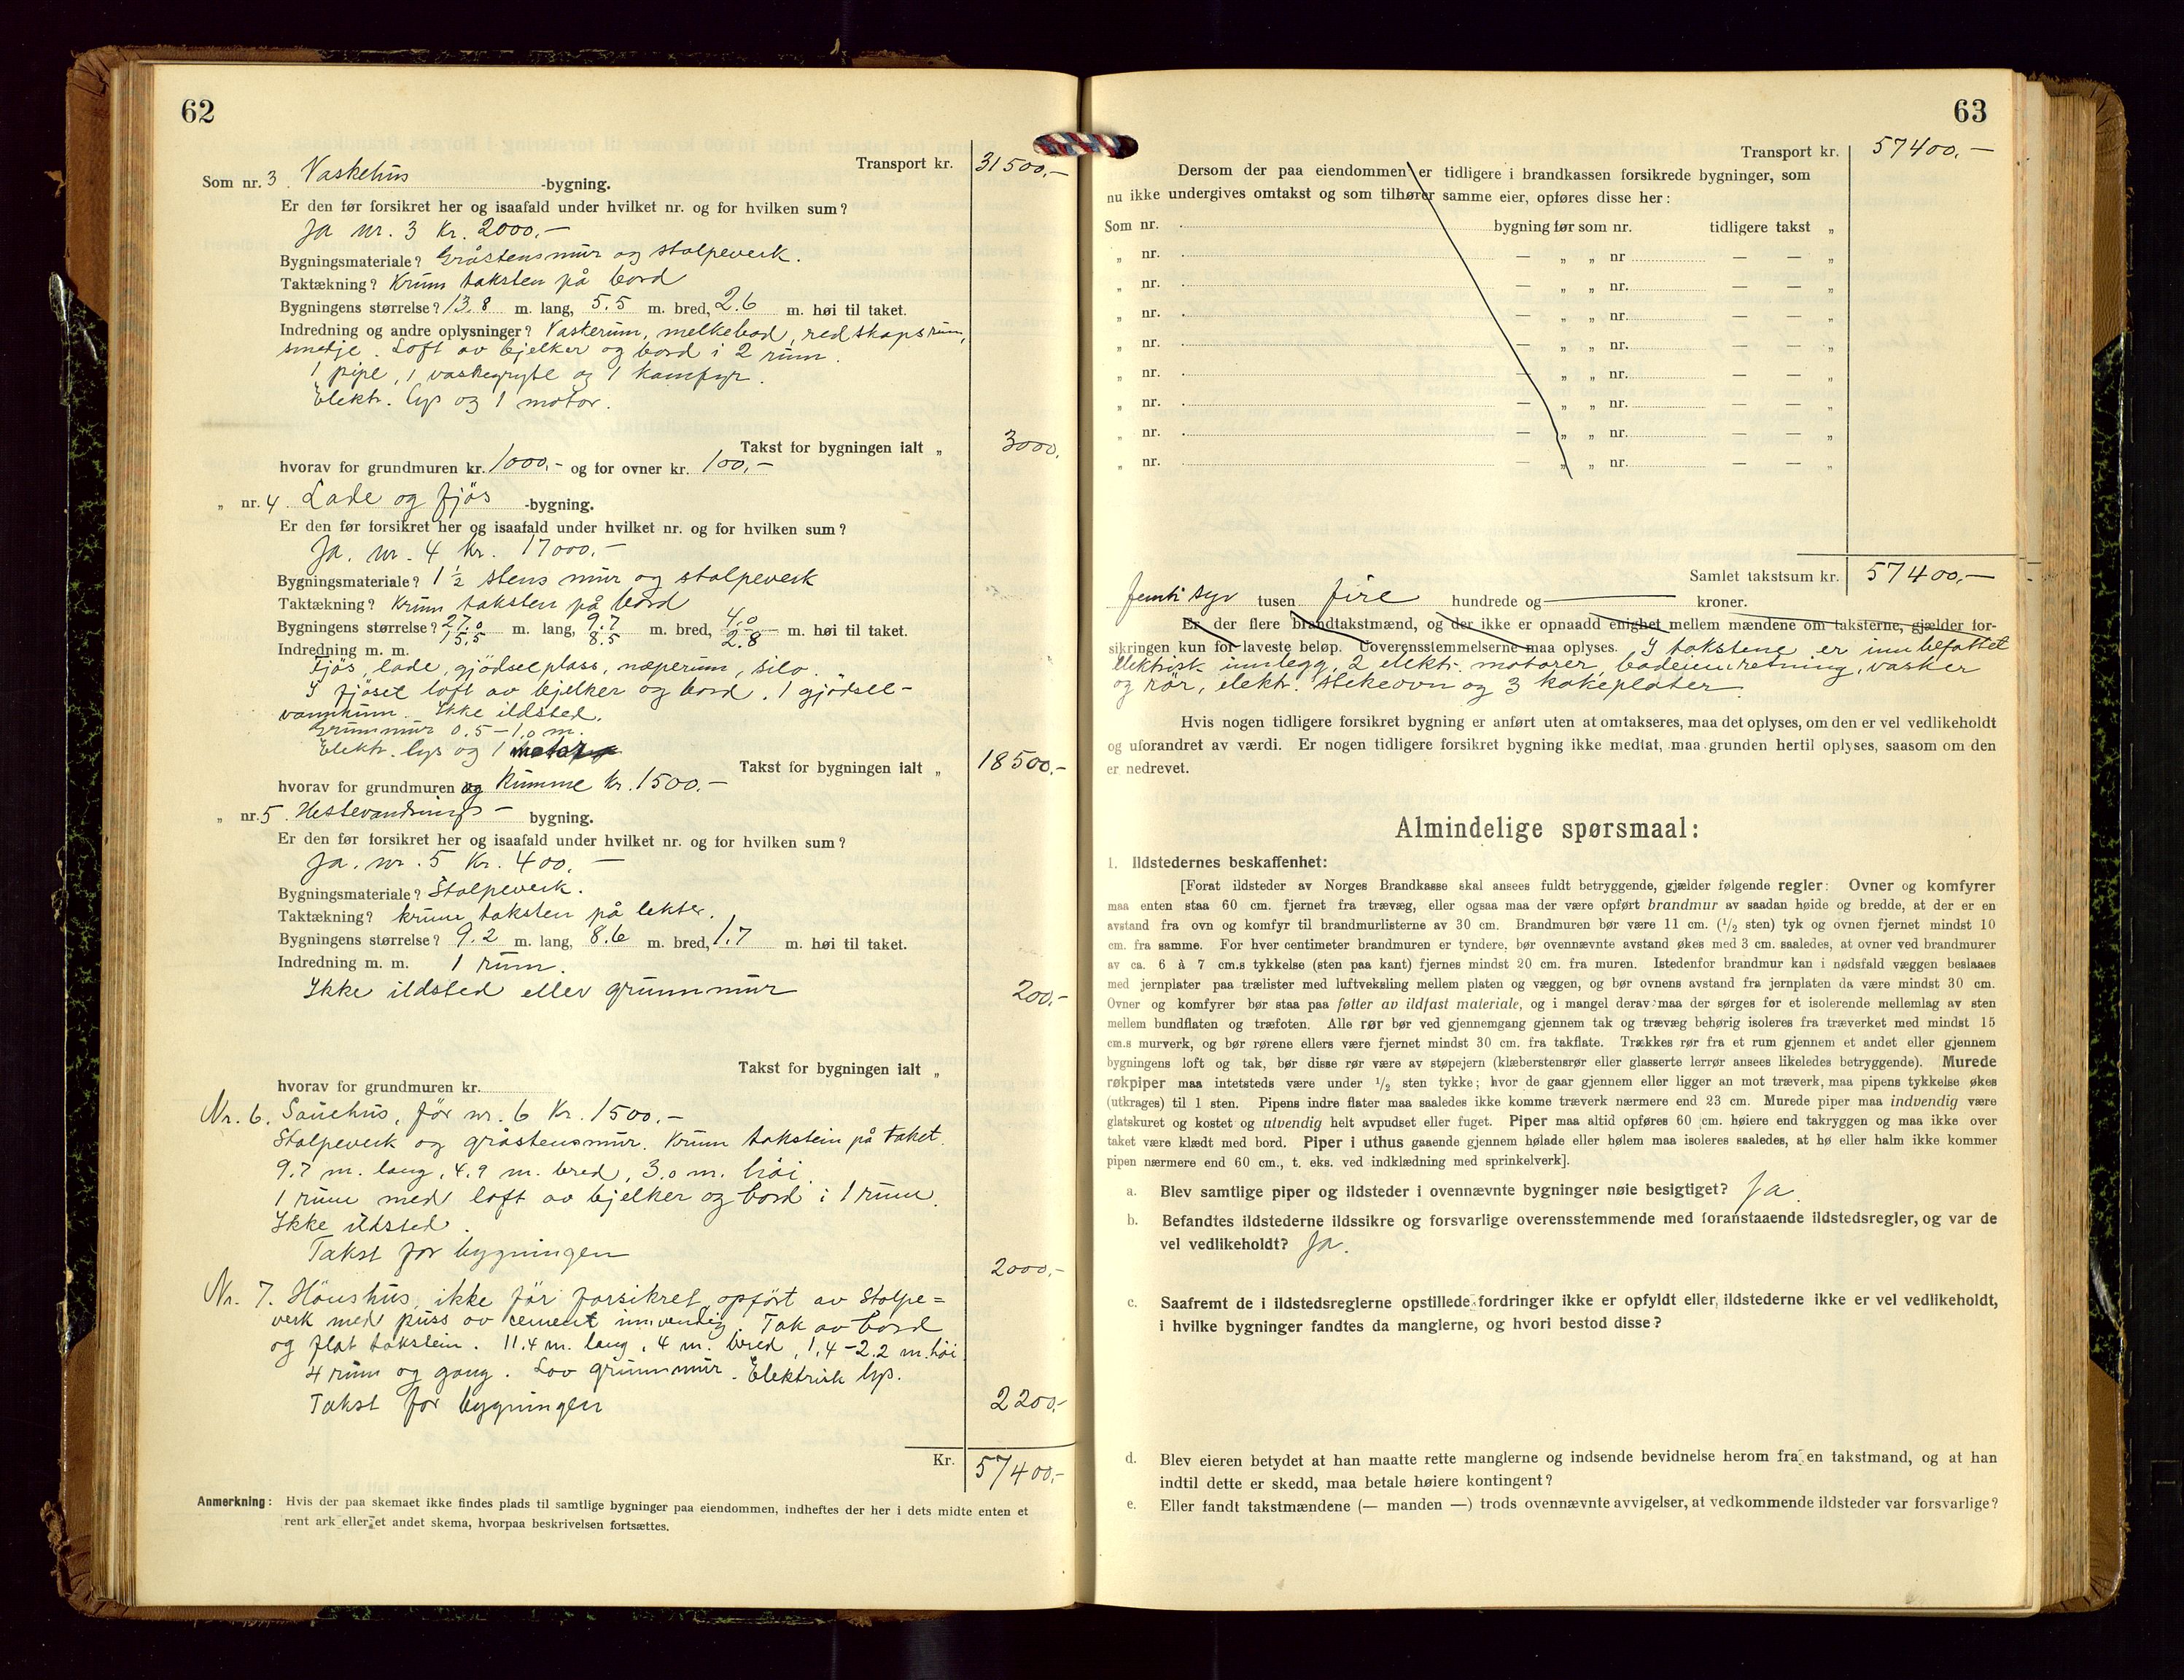 62
Transport kr. 31500,-
Som nr. 3. Vaskehus -bygning.
Er den før forsikret her og isaafald under hvilket nr. og for hvilken sum?
Ja nr. 3 Kr. 2000.-
Bygningsmateriale? Gråstensmur og stolpeverk.
Taktækning? Krum taksten på bord
Bygningens størrelse? 13.8 m. lang, 5.5 m. bred, 2.6 m. høi til taket.
Indredning og andre oplysninger? Vasterum, melkebod, redskapsrum,
smedje. Loft av bjelker og bord i 2 rum.
1 pipe, 1 vaskegryte og 1 komfyr.
Elektr. lys og 1 motor.
Takst for bygningen ialt „ 3000.
hvorav for grundmuren kr. 1000,- og for ovner kr. 100,-
„ nr. 4. Lade og fjös -bygning.
Er den før forsikret her og isaafald under hvilket nr. og for hvilken sum?
Ja. nr. 4 kr. 17000.-
Bygningsmateriale? 1 ½ stens mur og stolpeverk
Taktækning? Krum taksten på bord
Bygningens størrelse? 27.0 15.5 m. lang, 9.7 8.5 m. bred, 4.0 2.8 m. høi til taket.
Indredning m. m.
Fjös, lade, gjödselplass, næperum, silo.
I fjöset loft av bjelker og bord. 1 gjödsel-
vannkum. Ikke ildsted.
Grunnmur 0.5-1.0 m.
Elektr. lys og 1 motor
Takst for bygningen ialt „ 18500.-
hvorav for grundmuren og Kumme kr. 1500.-
„ nr. 5. Hestevandrings- bygning.
Er den før forsikret her og isaafald under hvilket nr. og for hvilken sum?
Ja. nr. 5 Kr. 400.-
Bygningsmateriale? Stolpeverk.
Taktækning? krum taksten på lekter.
Bygningens størrelse? 9.2 m. lang, 8.6 m. bred, 1.7 m. høi til taket.
Indredning m. m. 1 rum.
Ikke ildsted eller grunnmur 200,-
Takst for bygningen ialt „
hvorav for grundmuren kr.
Nr. 6. Sauehus, för nr. 6 Kr. 1500.-
Stolpeverk og gråstensmur. Krum takstein på taket.
9.7 m. lang, 4.9 m. bred, 3.0 m. höi
1 rum med loft av bjelker og bord i 1 rum.
Ikke ildsted.
Takst for bygningen 2000.-
Nr. 7. Hönshus, ikke för forsikret, opfört av Stolpe=
verk med puss av cement innvendig. Tak av bord
og flat takstein. 11.4 m. lang, 4 m. bred, 1.4-2.2 m. höi
4 rum og gang. Lav grunnmur. Elektrisk lys.
Takst for bygningen 2200.-
Kr. 57400,-
Anmerkning: Hvis der paa skemaet ikke findes plads til samtlige bygninger paa eiendommen, indheftes der her i dets midte enten et
rent ark eller et andet skema, hvorpaa beskrivelsen fortsættes.
63
Transport kr. 57400.-
Dersom der paa eiendommen er tidligere i brandkassen forsikrede bygninger, som
nu ikke undergives omtakst og som tilhører samme eier, opføres disse her:
Som nr. bygning før som nr. tidligere takst „
„ nr. — „ „ nr — — „
„ nr. — „ „ nr. — — „
„ nr. — „ „ nr. — — „
„ nr. — „ „ nr. — — „
„ nr. — „ „ nr. — — „
„ nr. — „ „ nr. — — „
„ nr. — „ „ nr. — — „
„ nr. — „ „ nr. — — „
Samlet takstsum kr. 57400,-
femti syv tusen fire hundrede og — kroner.
Er der flere brandtakstmænd, og der ikke er opnaadd enighet mellem mændene om taksterne, gjælder for-
sikringen kun for laveste beløp. Uoverensstemmelserne maa oplyses. I takstene er innbefattet
elektrisk innlegg, 2 elektr. motorer, badeinnretning, vasker
og rör, elektr. stekeovn og 3 kokeplater.
Hvis nogen tidligere forsikret bygning er anført uten at omtakseres, maa det oplyses, om den er vel vedlikeholdt
og uforandret av værdi. Er nogen tidligere forsikret bygning ikke medtat, maa grunden hertil oplyses, saasom om den
er nedrevet.
Almindelige spørsmaal:
1. Ildstedernes beskaffenhet:
[Forat ildsteder av Norges Brandkasse skal ansees fuldt betryggende, gjælder følgende regler: Ovner og komfyrer
maa enten staa 60 cm. fjernet fra trævæg, eller ogsaa maa der være opført brandmur av saadan høide og bredde, at der er en
avstand fra ovn og komfyr til brandmurlisterne av 30 cm. Brandmuren bør være 11 cm. (1/2 sten) tyk og ovnen fjernet mindst 10
cm. fra samme. For hver centimeter brandmuren er tyndere, bør ovennævnte avstand økes med 3 cm. saaledes, at ovner ved brandmurer
av ca. 6 à 7 cm.s tykkelse (sten paa kant) fjernes mindst 20 cm. fra muren. Istedenfor brandmur kan i nødsfald væggen beslaaes
med jernplater paa trælister med luftveksling mellem platen og væggen, og bør ovnens avstand fra jernplaten da være mindst 30 cm.
Ovner og komfyrer bør staa paa føtter av ildfast materiale, og i mangel derav maa der sørges for et isolerende mellemlag av sten
mellem bundflaten og træfoten. Alle rør bør ved gjennemgang gjennem tak og trævæg behørig isoleres fra træverket med mindst 15
cm.s murverk, og bør rørene ellers være fjernet mindst 30 cm. fra takflate. Trækkes rør fra et rum gjennem et andet eller gjennem
bygningens loft og tak, bør disse rør være av støpejern (klæberstensrør eller glasserte lerrør ansees likeledes betryggende). Murede
røkpiper maa intetsteds være under 1/2 sten tykke; hvor de gaar gjennem eller ligger an mot træverk, maa pipens tykkelse økes
(utkrages) til 1 sten. Pipens indre flater maa saaledes ikke komme træverk nærmere end 23 cm. Murede piper maa indvendig være
glatskuret og kostet og utvendig helt avpudset eller fuget. Piper maa altid opføres 60 cm. høiere end takryggen og maa ikke over
taket være klædt med bord. Piper i uthus gaaende gjennem hølade eller hølem maa isoleres saaledes, at hø eller halm ikke kommer
pipen nærmere end 60 cm., t. eks. ved indklædning med sprinkelverk].
a. Blev samtlige piper og ildsteder i ovennævnte bygninger nøie besigtiget? Ja.
b. Befandtes ildstederne ildssikre og forsvarlige overensstemmende med foranstaaende ildstedsregler, og var de
vel vedlikeholdt? Ja.
c. Saafremt de i ildstedsreglerne opstillede fordringer ikke er opfyldt eller ildstederne ikke er vel vedlikeholdt,
i hvilke bygninger fandtes da manglerne, og hvori bestod disse?
d. Blev eieren betydet at han maatte rette manglerne og indsende bevidnelse herom fra en takstmand, og at han
indtil dette er skedd, maa betale høiere kontingent?
e. Eller fandt takstmændene (— manden —) trods ovennævnte avvigelser, at vedkommende ildsteder var forsvarlige?